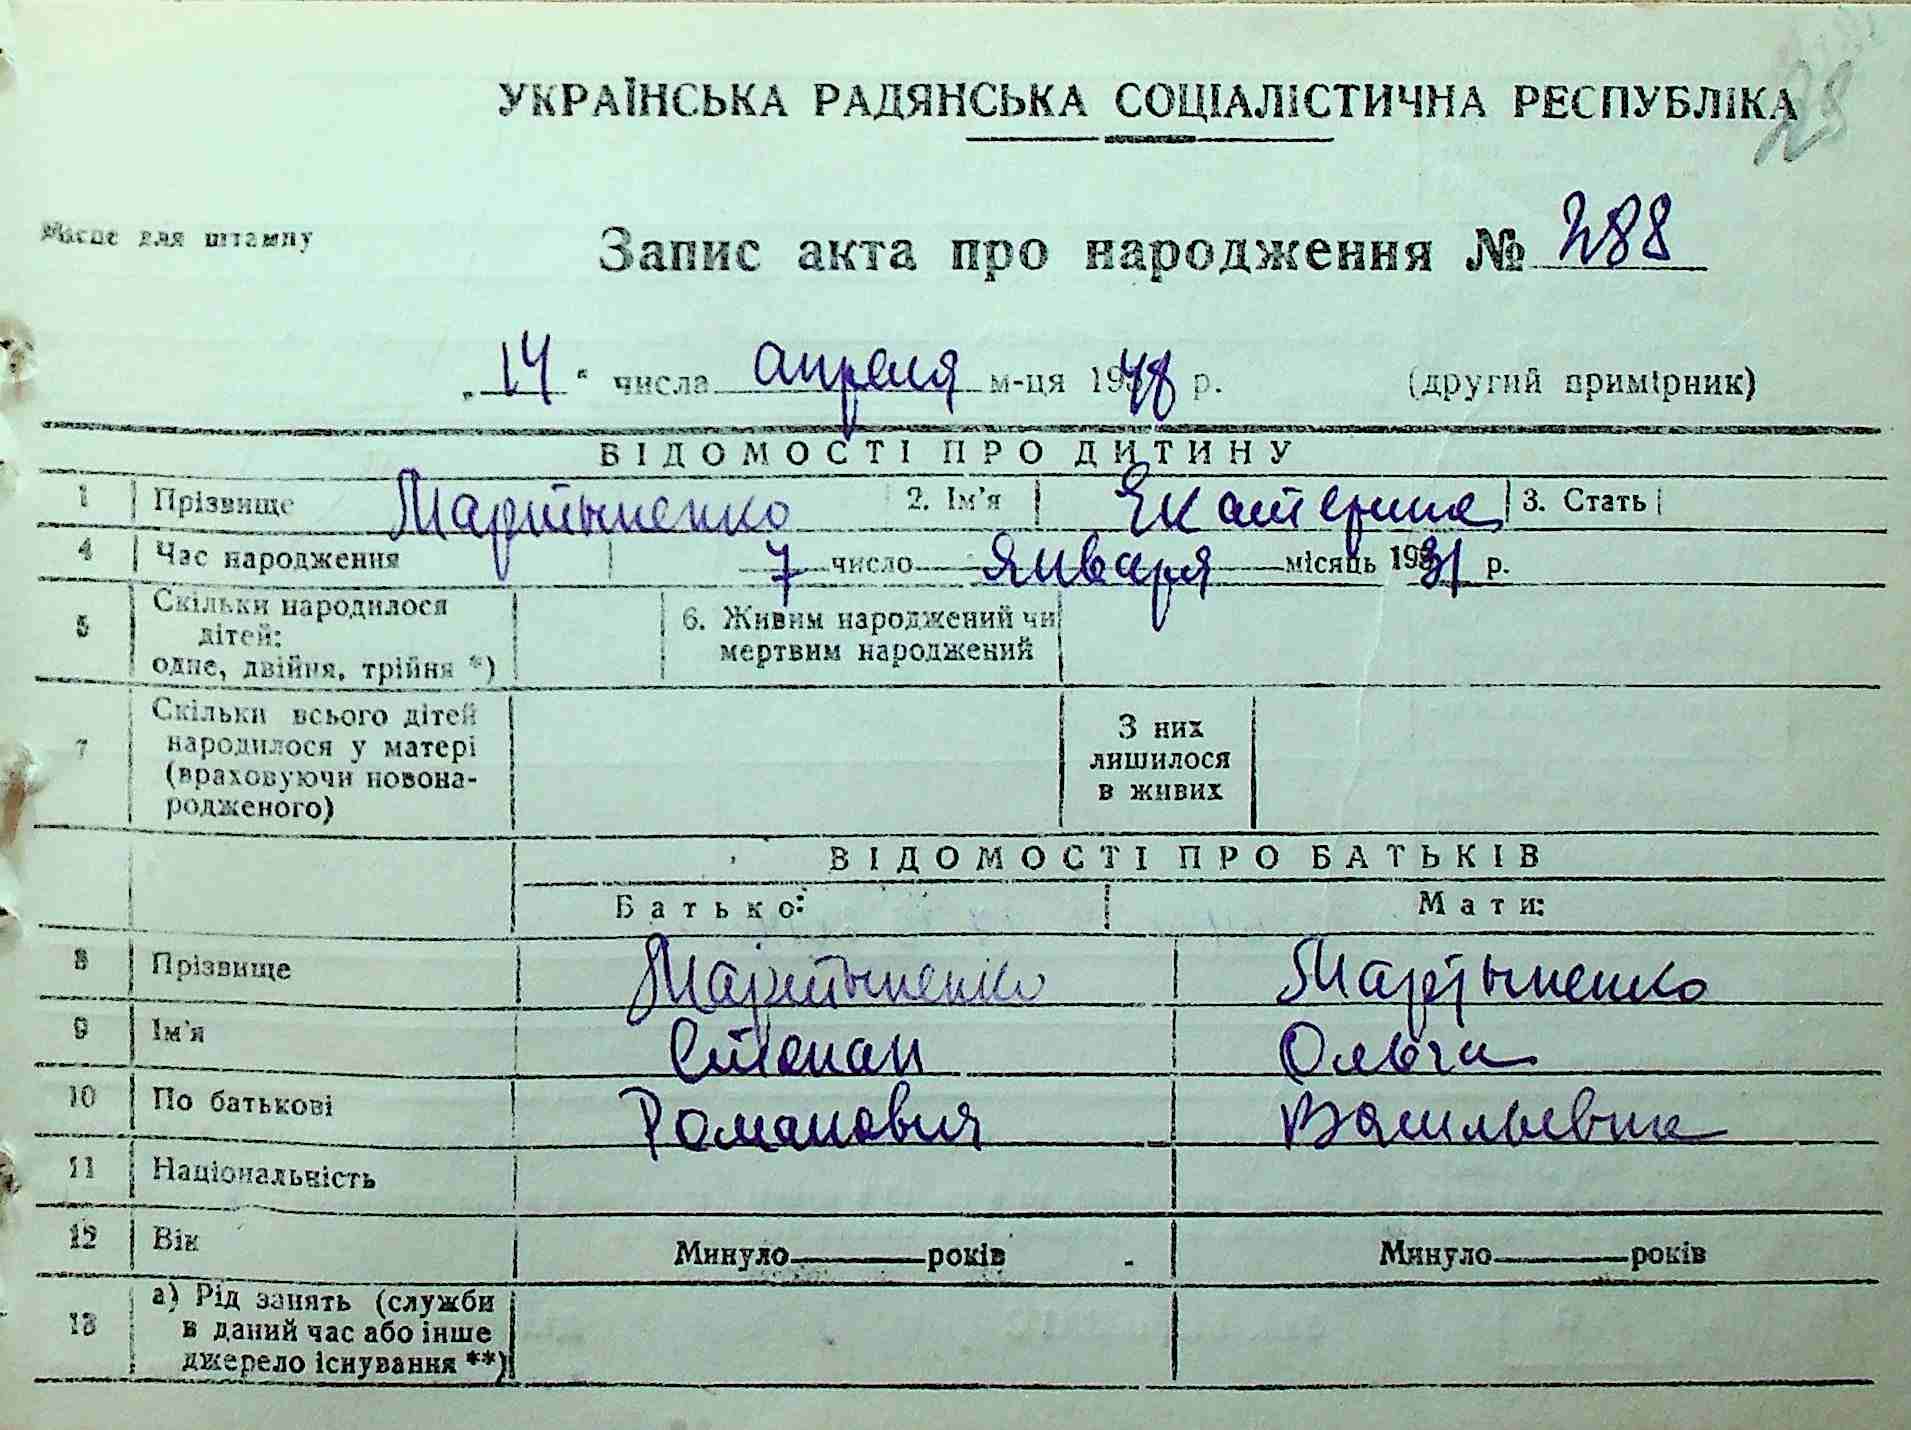 28
УКРАЇНСЬКА РАДЯНСЬКА СОЦІАЛІСТИЧНА РЕСПУБЛІКА
Місце для штампу
Запис акта про народження № 288
„ 14 “ числа апреля м-ця 1948 р. (другий примірник)
ВІДОМОСТІ ПРО ДИТИНУ
1 Прізвище Мартыненко 2. Ім’я Екатерина 3. Стать
4 Час народження 7 число января місяць 1931 р.
5 Скільки народилося дітей: одне, двійня, трійня *) 6. Живим народжений чи мертвим народжений
7 Скільки всього дітей народилося у матері (враховуючи новонародженого) З них лишилося в живих
ВІДОМОСТІ ПРО БАТЬКІВ
Батько: Мати:
8 Прізвище Мартыненко Мартыненко
9 Ім’я Степан Ольга
10 По батькові Романович Васильевна
11 Національність
12 Вік Минуло років Минуло років
13 а) Рід занять (служби в даний час або інше джерело існування **)